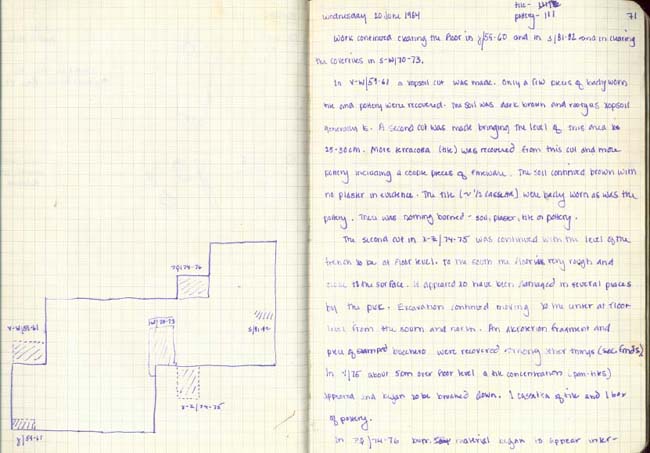 V-W/59-61
γ/59-61
7φ/74-76
W/70-73
S/81-82
X-Z/74-75
tile -
pottery - 111
Wednesday 20 June 1984
71
Work continued clearing the floor in γ/59-60 and in S/81-82 and in clearing
the coveries in S-W/70-73.
In V-W/59-61 a topsoil cut was made. Only a few pieces of badly worn
tile and pottery were recovered. The soil was dark brown and rooty as topsoil
generally is. A second cut was made bringing the level of this area to
25-30cm. More terracotta (tile) was recovered from this cut and more
pottery including a couple pieces of fineware. The soil continued brown with
no plaster in evidence. The tile (~ 1/2 cassetta) were badly worn as was the
pottery. There was nothing burned - soil, plaster, tile or pottery.
The second cut in X-Z/74-75 was continued with the level of the
trench to be at floor level. To the south the floor is very rough and
close to the surface. It appeared to have been damaged in several places
by the pick. Excavation continued moving to the center at floor
level from the south and north. An akroterion fragment and
piece of stamped bucchero were recovered among other things (see finds)
In Y/75 about 5cm over floor level a tile concentration (pan-tiles)
appeared and began to be breaked down. 1 cassetta of tile and 1 box
of pottery.
In 7φ/74-76 burn material began to appear inter-